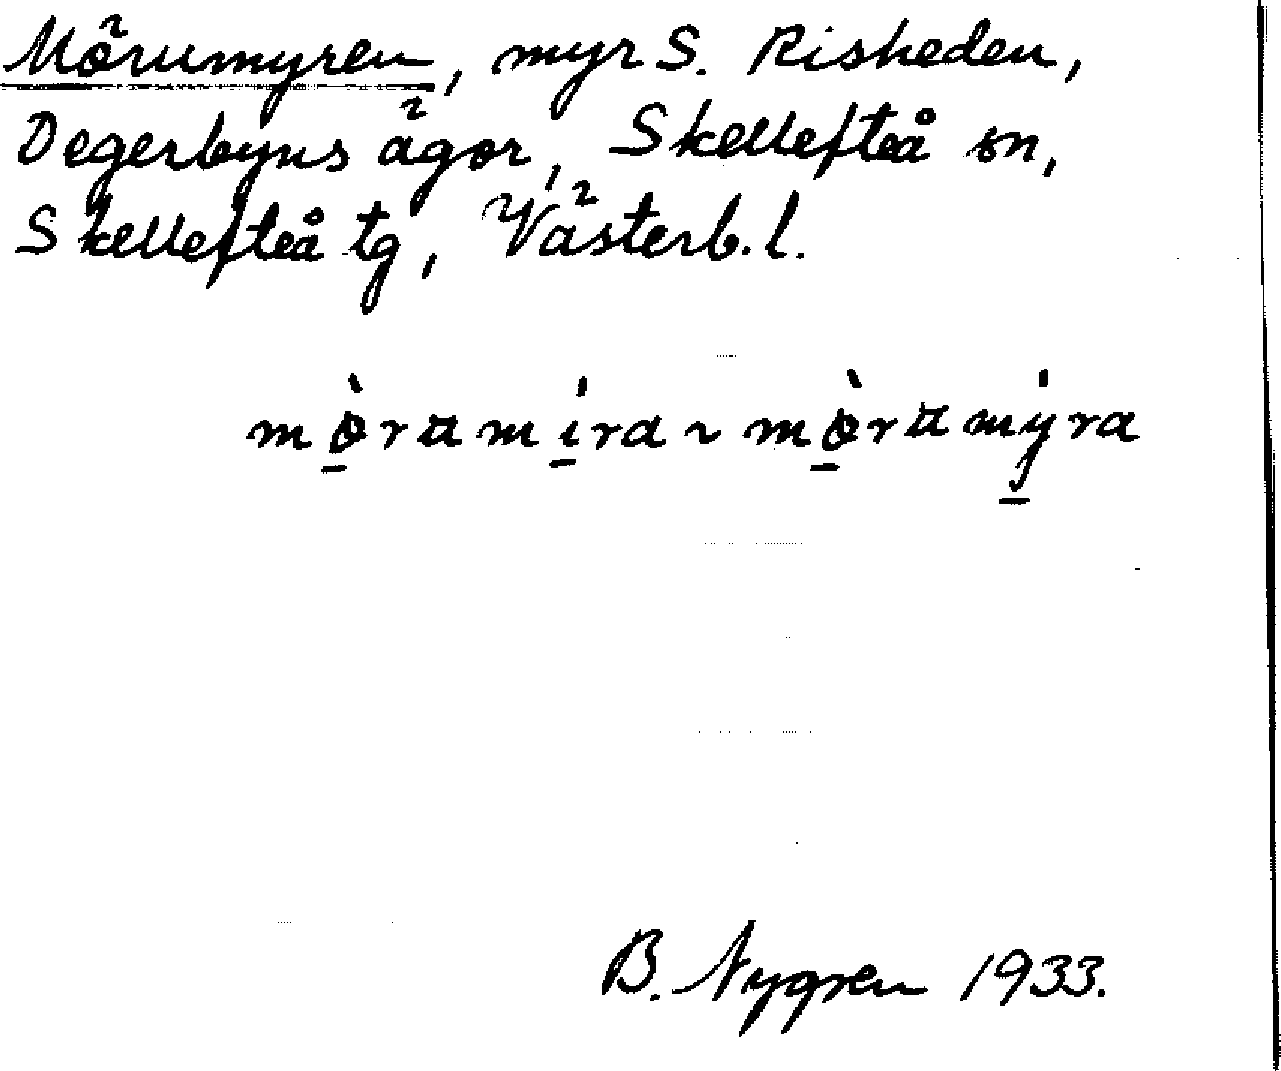 Mörumyren, myr S. Risheden,
Degerbyns ägor, Skellefteå sn,
Skellefteå tg, Västerb. l.
mö̱̀ramí̱ra ~ mö̱̀ramý̱ra
B. Nygren 1933.